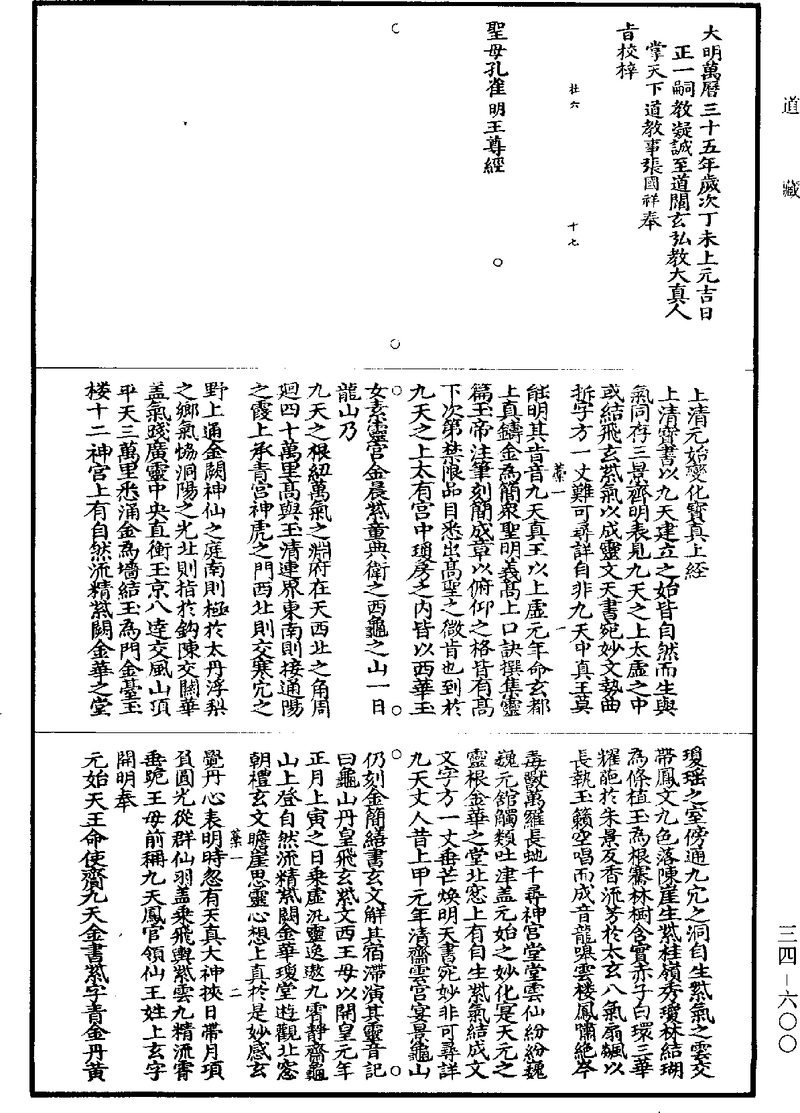 道藏
大明萬曆三十五年歲次丁未上元吉日
正一嗣教凝誠至道闡玄弘教大真人
掌天下道教事張國祥奉
旨校梓
壯六
十七
聖母孔雀明王尊經
上清元始變化寶真上經
上清齊書以九天建立之始皆自然而生與
氣同存三景齊明表見九天之上太虛之中
或結飛玄紫氣以成靈文天書宛妙文勢曲
折字方一丈難可尋詳自非九天中真王莫
藁一
一
能明其音音九天真王以上虛元年命玄都
上真鑄金為簡眾聖明義高上口訣撰集靈
篇玉帝注筆刻簡成章以俯仰之格皆有高
下次第禁限品目悉出高聖之微旨也到於
九天之上太有宮中瓊房之內皆以西華玉
女素靈宮金晨紫童典衛之西龜之山一曰
龍山乃
九天之根紐萬氣之淵府在天西北之角周
迴四十萬里高與玉清連界東南則接通陽
之霞上承青宮神虎之門西北則交寒穴之
野上通金闕神仙之庭南則極於太丹浮梨
之鄉氣協洞陽之光北則指於鈎陳交關華
蓋氣踐廣靈中央直衡玉京八達交風山頂
平天三萬里悉涌金為墻結玉為門金臺玉
樓十二神宮上有自然流精紫闕金華之堂
瓊瑤之室傍通九穴之洞自生紫氣之雲交
帶鳳文九色落陳崖生紫桂嶺秀瓊林結瑚
為條植玉為根騫林樹含實赤子白環三華
耀葩於朱景反香流芳於太玄八氣扇颻以
長執玉籟空唱而成音龍嘷雲樓鳳嘯絕岑
毒獸萬羅長虵千尋神宮堂堂雲仙紛紛巍
巍元館觸類吐津蓋元始之妙化寔天元之
靈根金華之堂北窓上有自生紫氣結成文
文字方一丈垂芒煥明天書宛妙非可尋詳
九天丈人昔上甲元年清齋雲宮宴景龜山
仍刻金簡繕書玄文解其宿滯演其靈音記
曰龜山丹皇飛玄紫文西王母以開皇元年
正月上寅之日乘虛汎靈逸遨九霄靜齋龜
山上登自然流精紫闕金華瓊堂遊觀北窓
朝禮玄文瞻崖思靈心想上真於是妙感玄
藁一
二
覺丹心表明時忽有天真大神挾日帶月項
負圓光從群仙羽蓋乘飛輿紫雲九精流霄
垂跪王母前稱九天鳳官領仙王姓上玄字
開明奉
元始天王命使齎九天金書紫字青金丹黄
三四-六〇〇